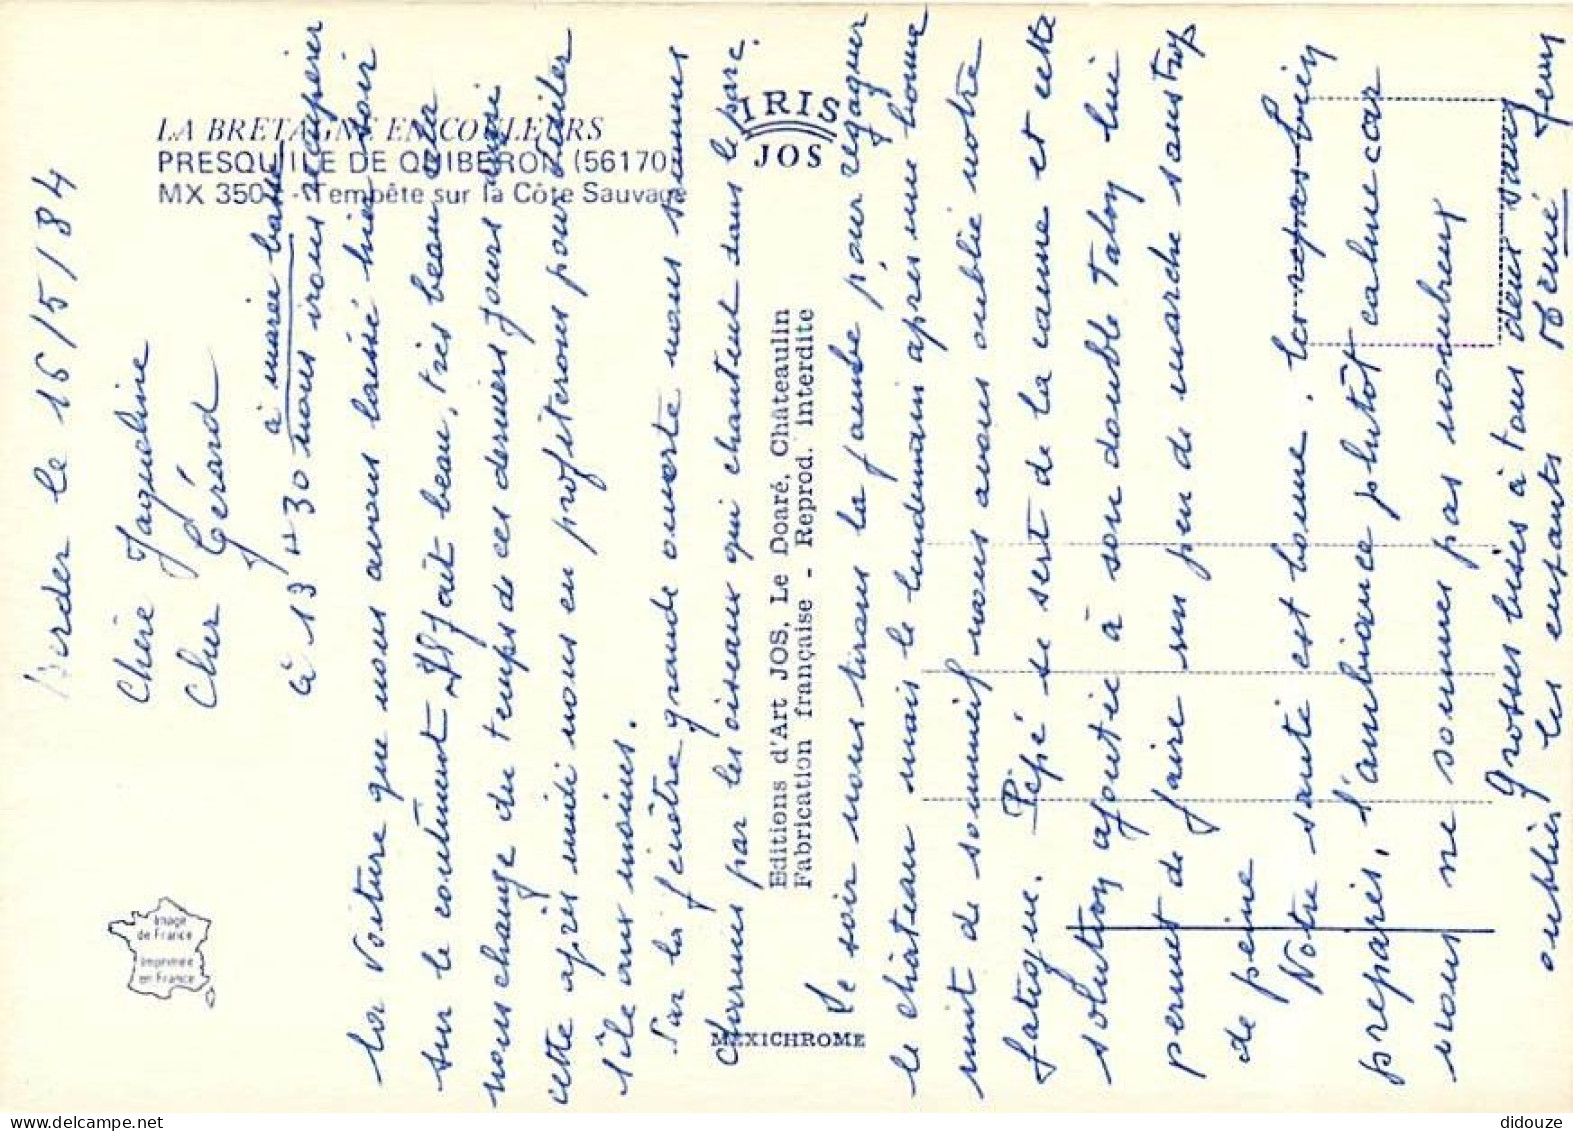 LA BRETAGNE EN COULEURS
PRESQU'ILE DE QUIBERON (56170)
MX 350 - Tempête sur la Côte Sauvage
IRIS
JOS
Editions d'Art JOS, Le Doaré, Châteaulin
Fabrication française - Reprod. interdite
MEXICHROME
Image
de France
Imprimée
en France
Berder le 16/5/84
Chère Jaqueline
Cher Gérard
à marée basse
à 13 H 30 nous irons récupérer
la voiture que nous avons laissé hier soir
sur le continent. Il fait beau, très beau cela
nous change du temps de ces derniers jours aussi
cette après midi nous en profiterons pour visiter
l'île aux moines.
Par la fenêtre grande ouverte nous sommes
charmés par les oiseaux qui chantent dans le parc.
Le soir nous tirons la jambe pour regagner
le château mais le lendemain après une bonne
nuit de sommeil nous avons oublié notre
fatigue. Pépé se sert de la canne et cette
solution ajoutée à son double talon lui
permet de faire un peu de marche sans trop
de peine
Notre santé est bonne. Les repas bien
préparés, l'ambiance plutôt calme car
nous ne sommes pas nombreux
Grosses bises à tous deux sans
oublier les enfants Mémé
didouze